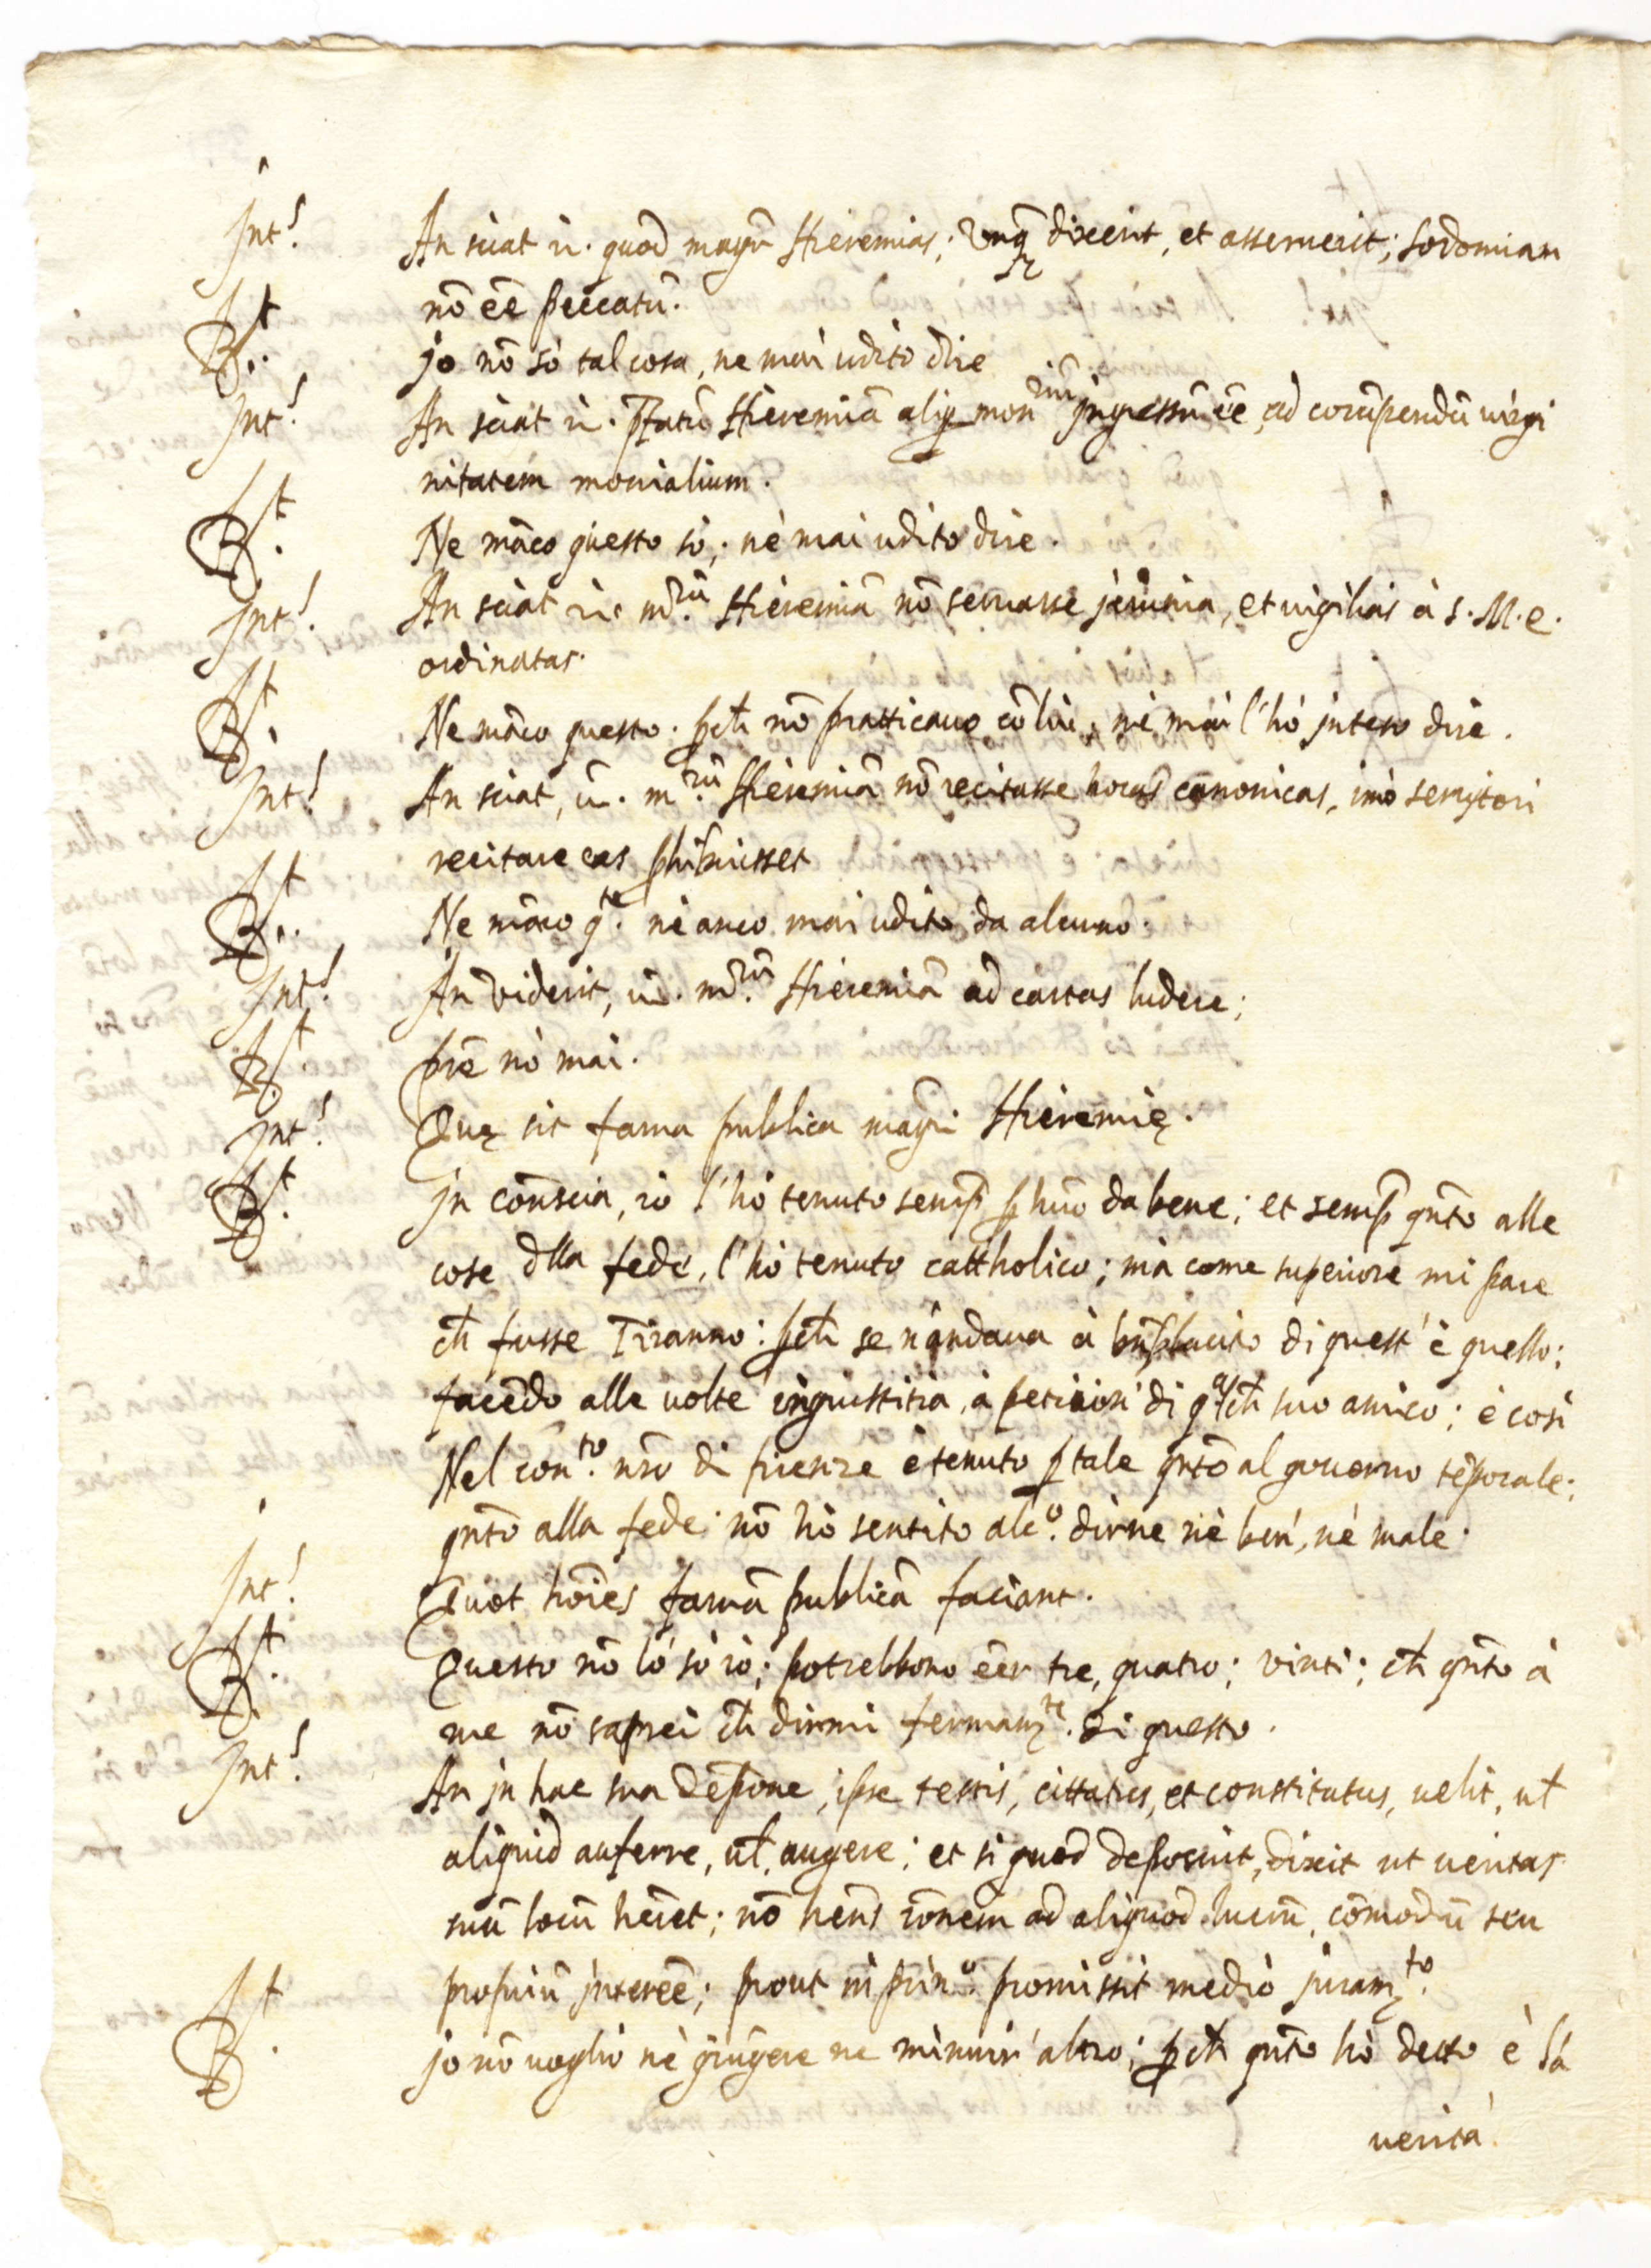 Int.s An sciat i. quod magr̃ Hieremias; unq̃ dixerit, et asseruerit; sodomiam
nõ eẽ peccatũ.
R.t jo nõ sò tal cosa, ne mai udito dire
Int.s An sciat i. p̃fatũ Hieremiã aliq̃ mon.riũ jngressũ eẽ ad corũpendũ virgi
nitatem monialium.
R.t Ne mãco questo sò; nè mai udito dire.
Int.s An sciat i. m.rũ Hieremiã nõ seruasse jeiunia, et uigilias à s. M. e.
ordinatas.
R.t Ne mãco questo. p̱ch nõ pratticauo cõ lui, nè mai l'hò jnteso dire.
Int.s An sciat, i. m.rũ Hieremiã nõ recitasse horas canonicas, imò seruitori
recitare eas p̱hibuisset
R.t Ne mãco q.to nè anco mai udito da alcuno.
Int.s An viderit, i. m.rũ Hieremiã ad cartas ludere;
R.t pr̃e nò mai.
Int.s Quę sit fama publica magr̃i Hieremię.
R.t jn cõnscia, io l'hò tenuto semp̱ p̱ huõ da bene; et semp̱ qñto alle
cose dlla fede, l'hò tenuto cattholico; mà come superiore mi pare
ch fusse Tiranno: p̱ch se n'andaua à bñplacito di quest' è quello;
facẽdo alle uolte ingiustitia, à petition' di q.alch suo amico; è cosi
Nel cõn.to nrõ di firenze è tenuto p̱ tale qñto al gouerno tẽporale;
qñto alla fede; nõ hò sentito alc.o dirne nè ben', nè male.
Int.s Quot hoĩes famã publicã faciant.
R.t Questo nõ lò sò iò; potrebbono eẽr tre, quatro; vinti; ch qñto à
me nõ saprei ch dirmi fermam.te di questo.
Int.s An jn hac sua depõne, ipse testis, cittatus, et constitutus, uelit, ut
aliquid auferre, ut, augere; et si quod deposuit, dixit ut ueritas
suũ locũ herẽt; nõ hẽns rõnem ad aliquod lucrũ, cõmodũ seu
propriũ jntereẽ; prout in prin.o promissit mediò juram.to
R.t jo nõ uoglio nè giũgere ne minuir' altro; p̱ch qñto hò detto è là
verità